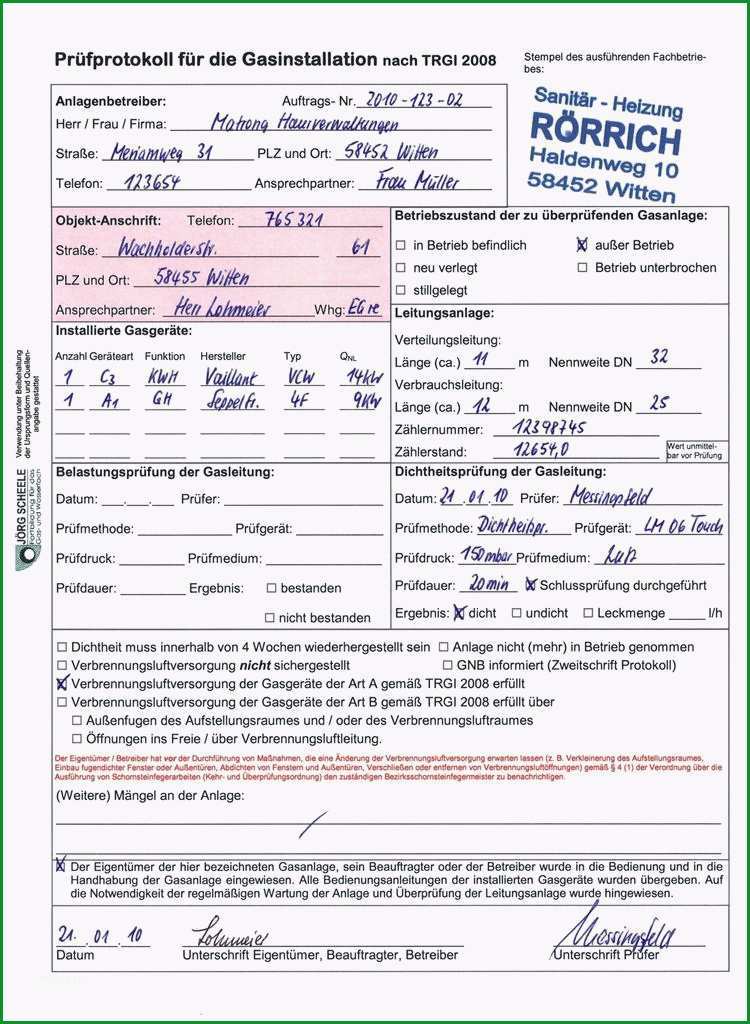 Prüfprotokoll für die Gasinstallation nach TRGI 2008
Stempel des ausführenden Fachbetrie-
bes:
Sanitär - Heizung
RÖRRICH
Haldenweg 10
58452 Witten
Anlagenbetreiber: Auftrags- Nr. 2010-123-02
Herr / Frau / Firma: Matrong Hausverwaltungen
Straße: Meriamweg 31 PLZ und Ort: 58452 Witten
Telefon: 123654 Ansprechpartner: Frau Müller
Objekt-Anschrift: Telefon: 765321
Straße: Wachholderstr. 61
PLZ und Ort: 58455 Witten
Ansprechpartner: Herr Lohmeier Whg: EG re
Betriebszustand der zu überprüfenden Gasanlage:
☐ in Betrieb befindlich ☒ außer Betrieb
☐ neu verlegt ☐ Betrieb unterbrochen
☐ stillgelegt
Installierte Gasgeräte:
Anzahl Geräteart Funktion Hersteller Typ QNL
1 C3 KWH Vaillant VCW 14KW
1 A1 GH Seppelfr. 4F 9KW
Leitungsanlage:
Verteilungsleitung:
Länge (ca.) 11 m Nennweite DN 32
Verbrauchsleitung:
Länge (ca.) 12 m Nennweite DN 25
Zählernummer: 12398745
Zählerstand: 12654,0
Wert unmittel-
bar vor Prüfung
Verwendung unter Beibehaltung
der Ursprungsform und Quellen-
angabe gestattet
JÖRG SCHEELE
Fortbildung für das
Gas- und Wasserfach
Belastungsprüfung der Gasleitung:
Datum: ___.___.___ Prüfer:
Prüfmethode: Prüfgerät:
Prüfdruck: Prüfmedium:
Prüfdauer: Ergebnis: ☐ bestanden
☐ nicht bestanden
Dichtheitsprüfung der Gasleitung:
Datum: 21.01.10 Prüfer: Messingsfeld
Prüfmethode: Dichtheitspr. Prüfgerät: LM 06 Touch
Prüfdruck: 150mbar Prüfmedium: Luft
Prüfdauer: 20min ☒ Schlussprüfung durchgeführt
Ergebnis: ☒ dicht ☐ undicht ☐ Leckmenge _____ l/h
☐ Dichtheit muss innerhalb von 4 Wochen wiederhergestellt sein ☐ Anlage nicht (mehr) in Betrieb genommen
☐ Verbrennungsluftversorgung nicht sichergestellt ☐ GNB informiert (Zweitschrift Protokoll)
☒ Verbrennungsluftversorgung der Gasgeräte der Art A gemäß TRGI 2008 erfüllt
☐ Verbrennungsluftversorgung der Gasgeräte der Art B gemäß TRGI 2008 erfüllt über
☐ Außenfugen des Aufstellungsraumes und / oder des Verbrennungsluftraumes
☐ Öffnungen ins Freie / über Verbrennungsluftleitung.
Der Eigentümer / Betreiber hat vor der Durchführung von Maßnahmen, die eine Änderung der Verbrennungsluftversorgung erwarten lassen (z. B. Verkleinerung des Aufstellungsraumes,
Einbau fugendichter Fenster oder Außentüren, Abdichten von Fenstern und Außentüren, Verschließen oder entfernen von Verbrennungsluftöffnungen) gemäß § 4 (1) der Verordnung über die
Ausführung von Schornsteinfegerarbeiten (Kehr- und Überprüfungsordnung) den zuständigen Bezirksschornsteinfegermeister zu benachrichtigen.
(Weitere) Mängel an der Anlage:
/
☒ Der Eigentümer der hier bezeichneten Gasanlage, sein Beauftragter oder der Betreiber wurde in die Bedienung und in die
Handhabung der Gasanlage eingewiesen. Alle Bedienungsanleitungen der installierten Gasgeräte wurden übergeben. Auf
die Notwendigkeit der regelmäßigen Wartung der Anlage und Überprüfung der Leitungsanlage wurde hingewiesen.
21.01.10 Lohmeier Messingsfeld
Datum Unterschrift Eigentümer, Beauftragter, Betreiber Unterschrift Prüfer